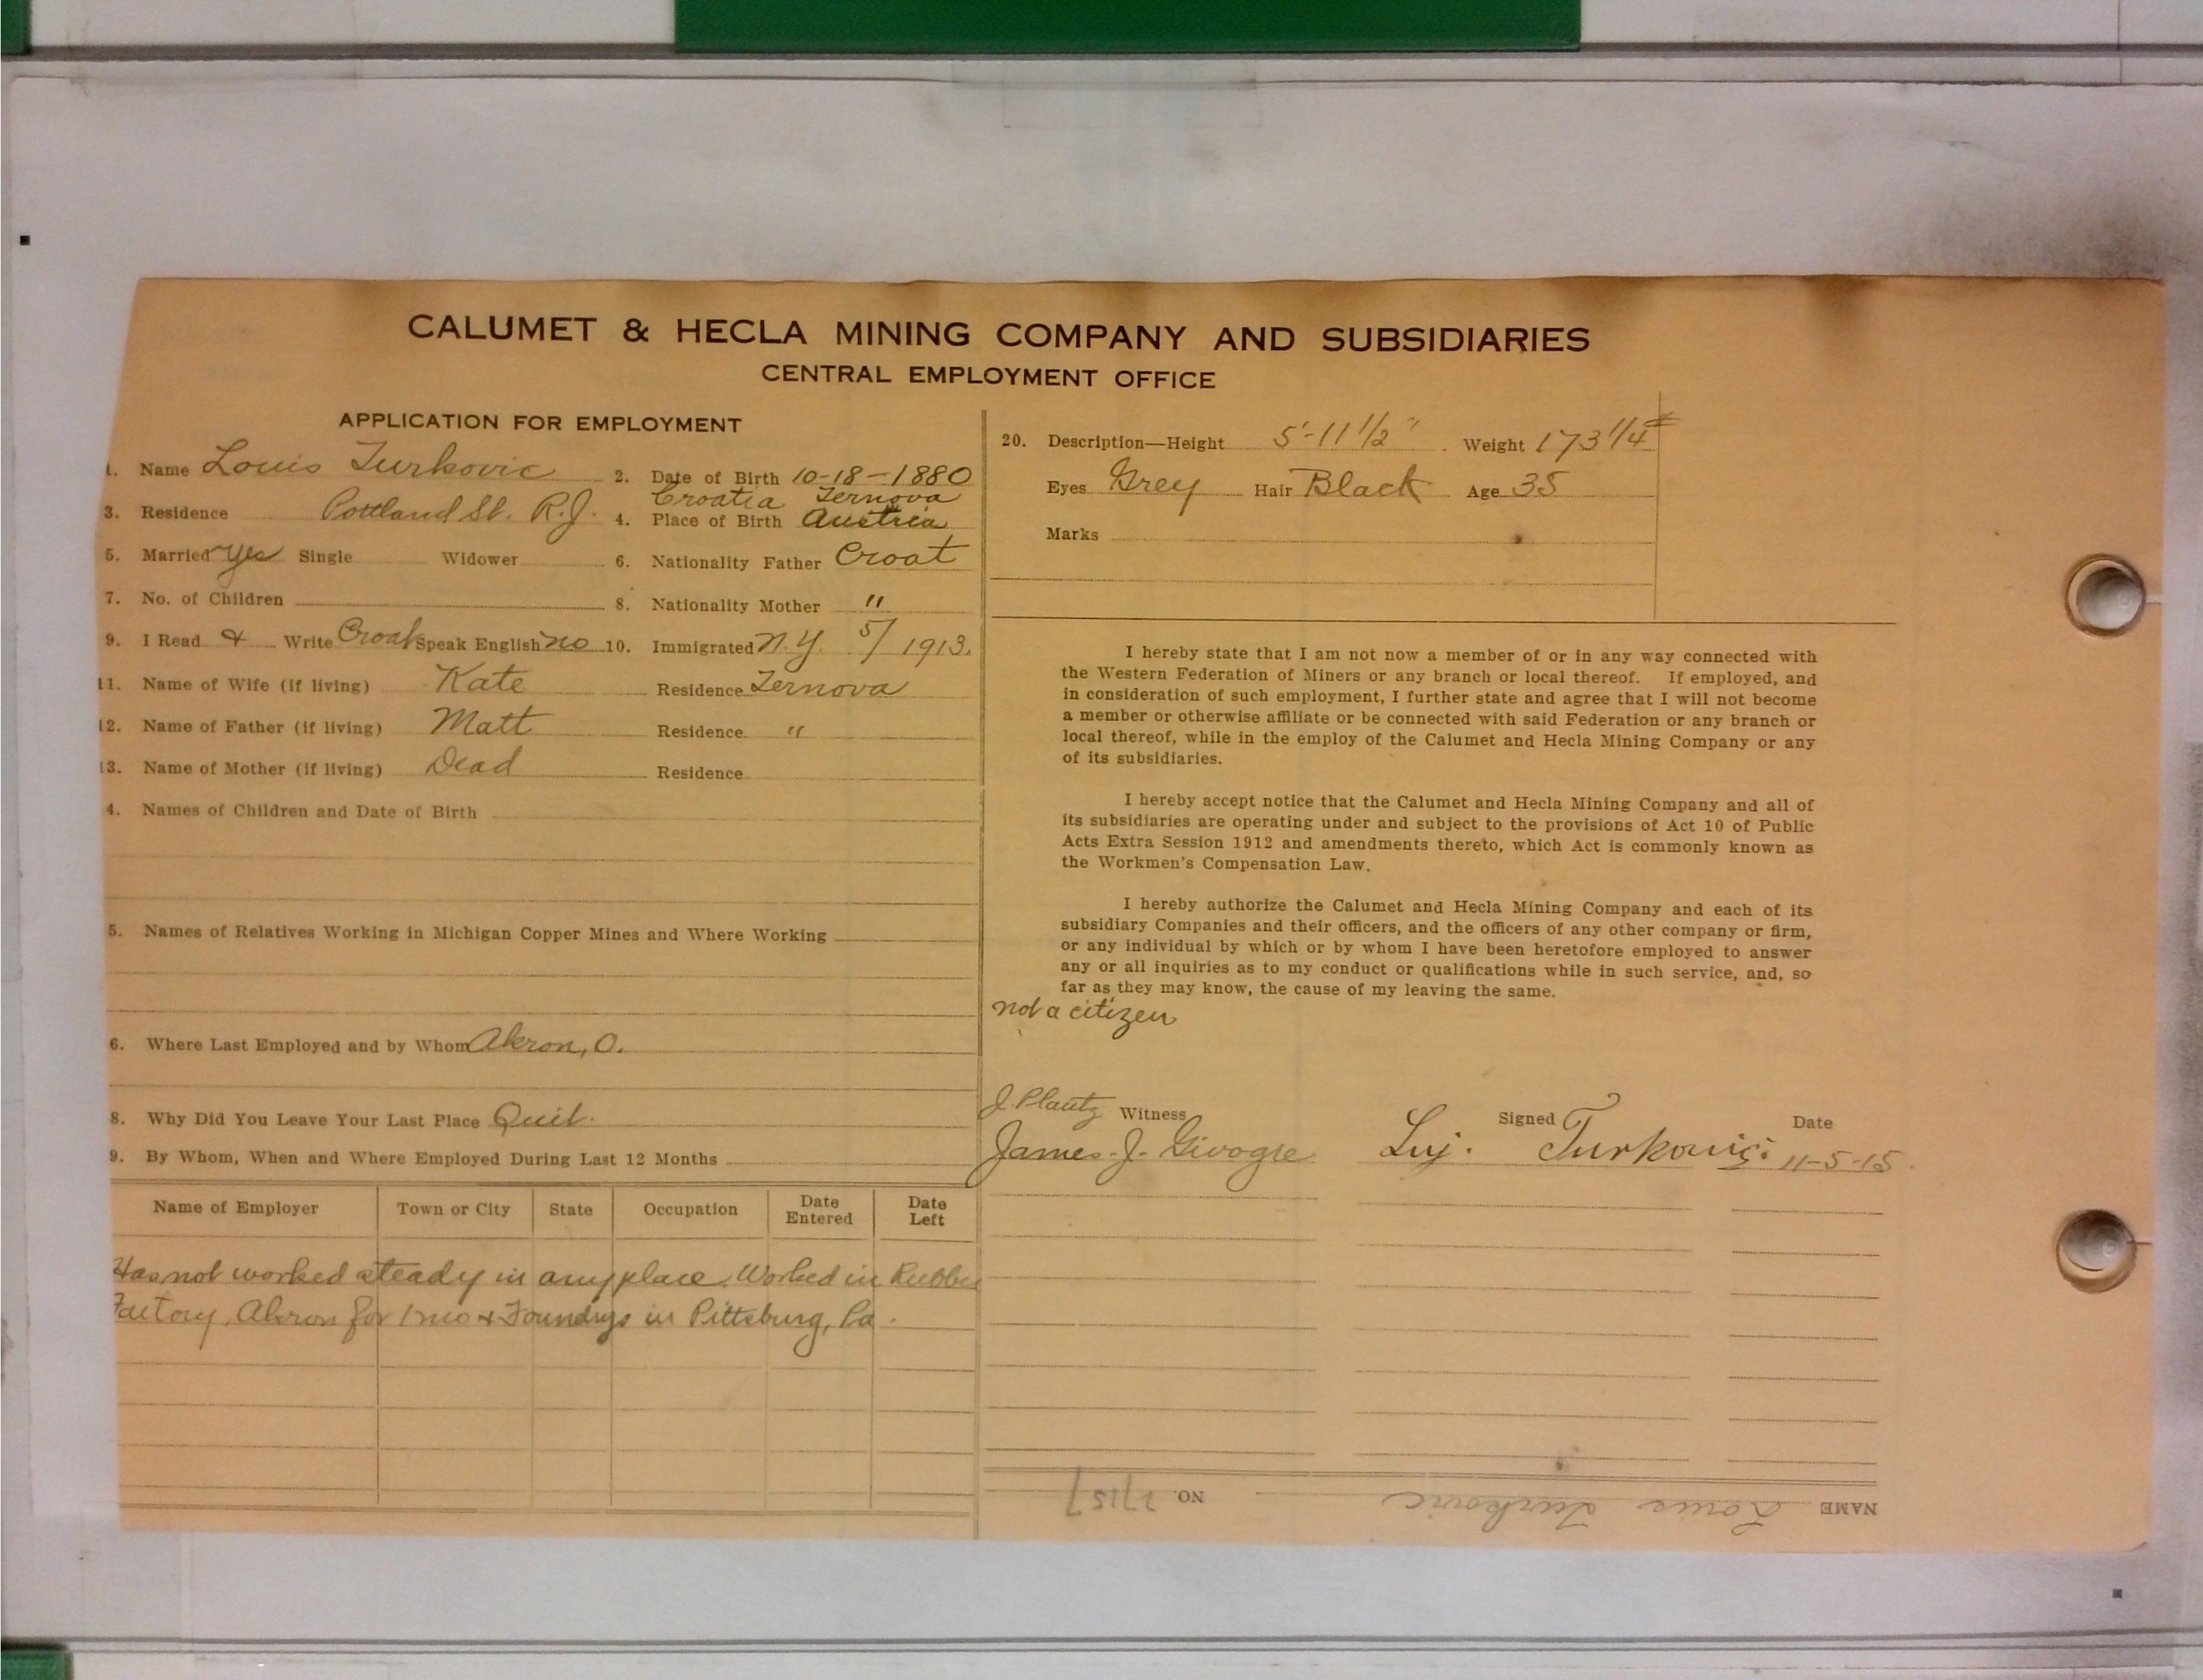 CALUMET & HECLA MINING COMPANY AND SUBSIDIARIES
CENTRAL EMPLOYMENT OFFICE
APPLICATION FOR EMPLOYMENT
1. Name Louis Turkovic 2. Date of Birth 10-18-1880
Croatia Ternova
3. Residence Portland St. R.J. 4. Place of Birth Austria
5. Married Yes Single Widower 6. Nationality Father Croat
7. No. of Children 8. Nationality Mother "
9. I Read & Write Croat Speak English no 10. Immigrated N.Y. 5/1913.
11. Name of Wife (if living) Kate Residence Ternova
12. Name of Father (if living) Matt Residence "
13. Name of Mother (if living) Dead Residence
4. Names of Children and Date of Birth
5. Names of Relatives Working in Michigan Copper Mines and Where Working
6. Where Last Employed and by Whom Akron, O.
8. Why Did You Leave Your Last Place Quit.
9. By Whom, When and Where Employed During Last 12 Months
Name of Employer Town or City State Occupation Date Entered Date Left
Has not worked steady in any place. Worked in Rubber
Factory, Akron for 1 mo & Foundrys in Pittsburg, Pa.
20. Description—Height 5'-11 1/2" Weight 173 1/4#
Eyes Grey Hair Black Age 35
Marks
I hereby state that I am not now a member of or in any way connected with
the Western Federation of Miners or any branch or local thereof. If employed, and
in consideration of such employment, I further state and agree that I will not become
a member or otherwise affiliate or be connected with said Federation or any branch or
local thereof, while in the employ of the Calumet and Hecla Mining Company or any
of its subsidiaries.
I hereby accept notice that the Calumet and Hecla Mining Company and all of
its subsidiaries are operating under and subject to the provisions of Act 10 of Public
Acts Extra Session 1912 and amendments thereto, which Act is commonly known as
the Workmen's Compensation Law.
I hereby authorize the Calumet and Hecla Mining Company and each of its
subsidiary Companies and their officers, and the officers of any other company or firm,
or any individual by which or by whom I have been heretofore employed to answer
any or all inquiries as to my conduct or qualifications while in such service, and, so
far as they may know, the cause of my leaving the same.
not a citizen
J. Plautz Witness Signed Date
James. J. Luj. Turkovic 11-5-15.
NAME Louis Turkovic NO.